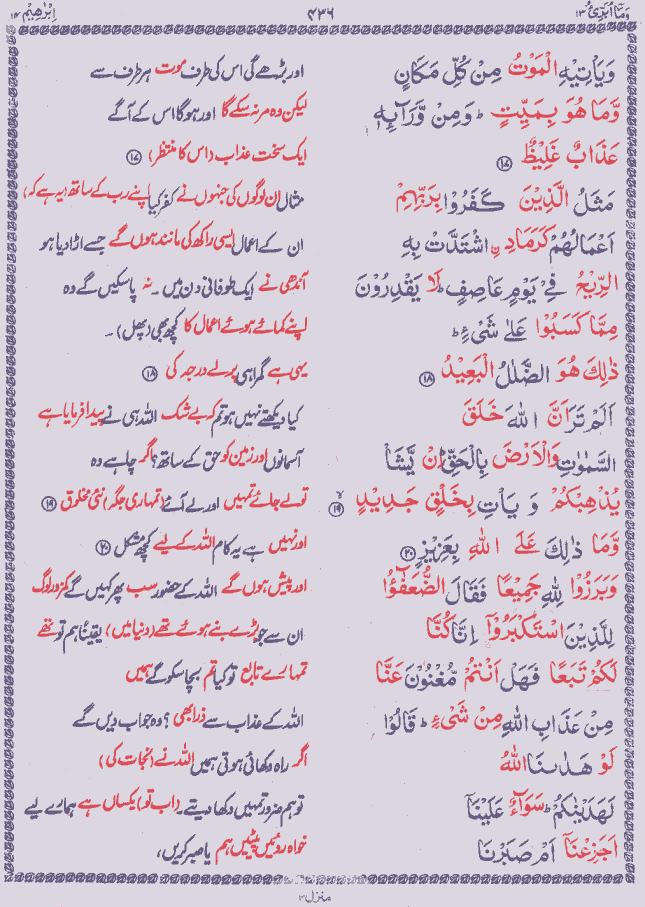 وَمَآ اُبَرِّئُ ۱۳
۴۳۶
اِبْرٰهِيْم ۱۴
وَيَاْتِيْهِ الْمَوْتُ مِنْ كُلِّ مَكَانٍ
اور بڑھے گی اس کی طرف موت ہر طرف سے
وَّمَا هُوَ بِمَيِّتٍ ؕ وَمِنْ وَّرَآىِٕهٖ
لیکن وہ مر نہ سکے گا اور ہوگا اس کے آگے
عَذَابٌ غَلِيْظٌ ۝۱۷
ایک سخت عذاب (اس کا منتظر) ۝۱۷
مَثَلُ الَّذِيْنَ كَفَرُوْا بِرَبِّهِمْ
مثال ان لوگوں کی جنہوں نے کفر کیا اپنے رب کے ساتھ (یہ ہے کہ)
اَعْمَالُهُمْ كَرَمَادِ ِۨاشْتَدَّتْ بِهِ
ان کے اعمال ایسی راکھ کی مانند ہوں گے جسے اڑا دیا ہو
الرِّيْحُ فِيْ يَوْمٍ عَاصِفٍ ؕ لَا يَقْدِرُوْنَ
آندھی نے ایک طوفانی دن میں ۔ نہ پاسکیں گے وہ
مِمَّا كَسَبُوْا عَلٰى شَىْءٍ ؕ
اپنے کمائے ہوئے اعمال کا کچھ بھی (پھل) ۔
ذٰلِكَ هُوَ الضَّلٰلُ الْبَعِيْدُ ۝۱۸
یہی ہے گمراہی پرلے درجہ کی ۝۱۸
اَلَمْ تَرَ اَنَّ اللّٰهَ خَلَقَ
کیا دیکھتے نہیں ہو تم کہ بے شک اللہ ہی نے پیدا فرمایا ہے
السَّمٰوٰتِ وَالْاَرْضَ بِالْحَقِّ ؕ اِنْ يَّشَاْ
آسمانوں اور زمین کو حق کے ساتھ؟ اگر چاہے وہ
يُذْهِبْكُمْ وَ يَاْتِ بِخَلْقٍ جَدِيْدٍ ۙ‏۝۱۹
تو لے جائے تمہیں اور لے آئے (تمہاری جگہ) نئی مخلوق ۝۱۹
وَّمَا ذٰلِكَ عَلَى اللّٰهِ بِعَزِيْزٍ ۝۲۰
اور نہیں ہے یہ کام اللہ کے لیے کچھ مشکل ۝۲۰
وَبَرَزُوْا لِلّٰهِ جَمِيْعًا فَقَالَ الضُّعَفٰٓؤُا
اور پیش ہوں گے اللہ کے حضور سب پھر کہیں گے کمزور لوگ
لِلَّذِيْنَ اسْتَكْبَرُوْٓا اِنَّا كُنَّا
ان سے جو بڑے بنے ہوئے تھے (دنیا میں) یقیناً ہم تو تھے
لَكُمْ تَبَعًا فَهَلْ اَنْتُمْ مُّغْنُوْنَ عَنَّا
تمہارے تابع تو کیا تم بچا سکو گے ہمیں
مِنْ عَذَابِ اللّٰهِ مِنْ شَىْءٍ ؕ قَالُوْا
اللہ کے عذاب سے ذرا بھی؟ وہ جواب دیں گے
لَوْ هَدٰىنَا اللّٰهُ
اگر راہ دکھائی ہوتی ہمیں اللہ نے (نجات کی)
لَهَدَيْنٰكُمْ ؕ سَوَآءٌ عَلَيْنَآ
تو ہم ضرور تمہیں دکھا دیتے ۔ (اب تو) یکساں ہے ہمارے لیے
اَجَزِعْنَآ اَمْ صَبَرْنَا
خواہ روئیں پیٹیں ہم یا صبر کریں،
منزل ۳